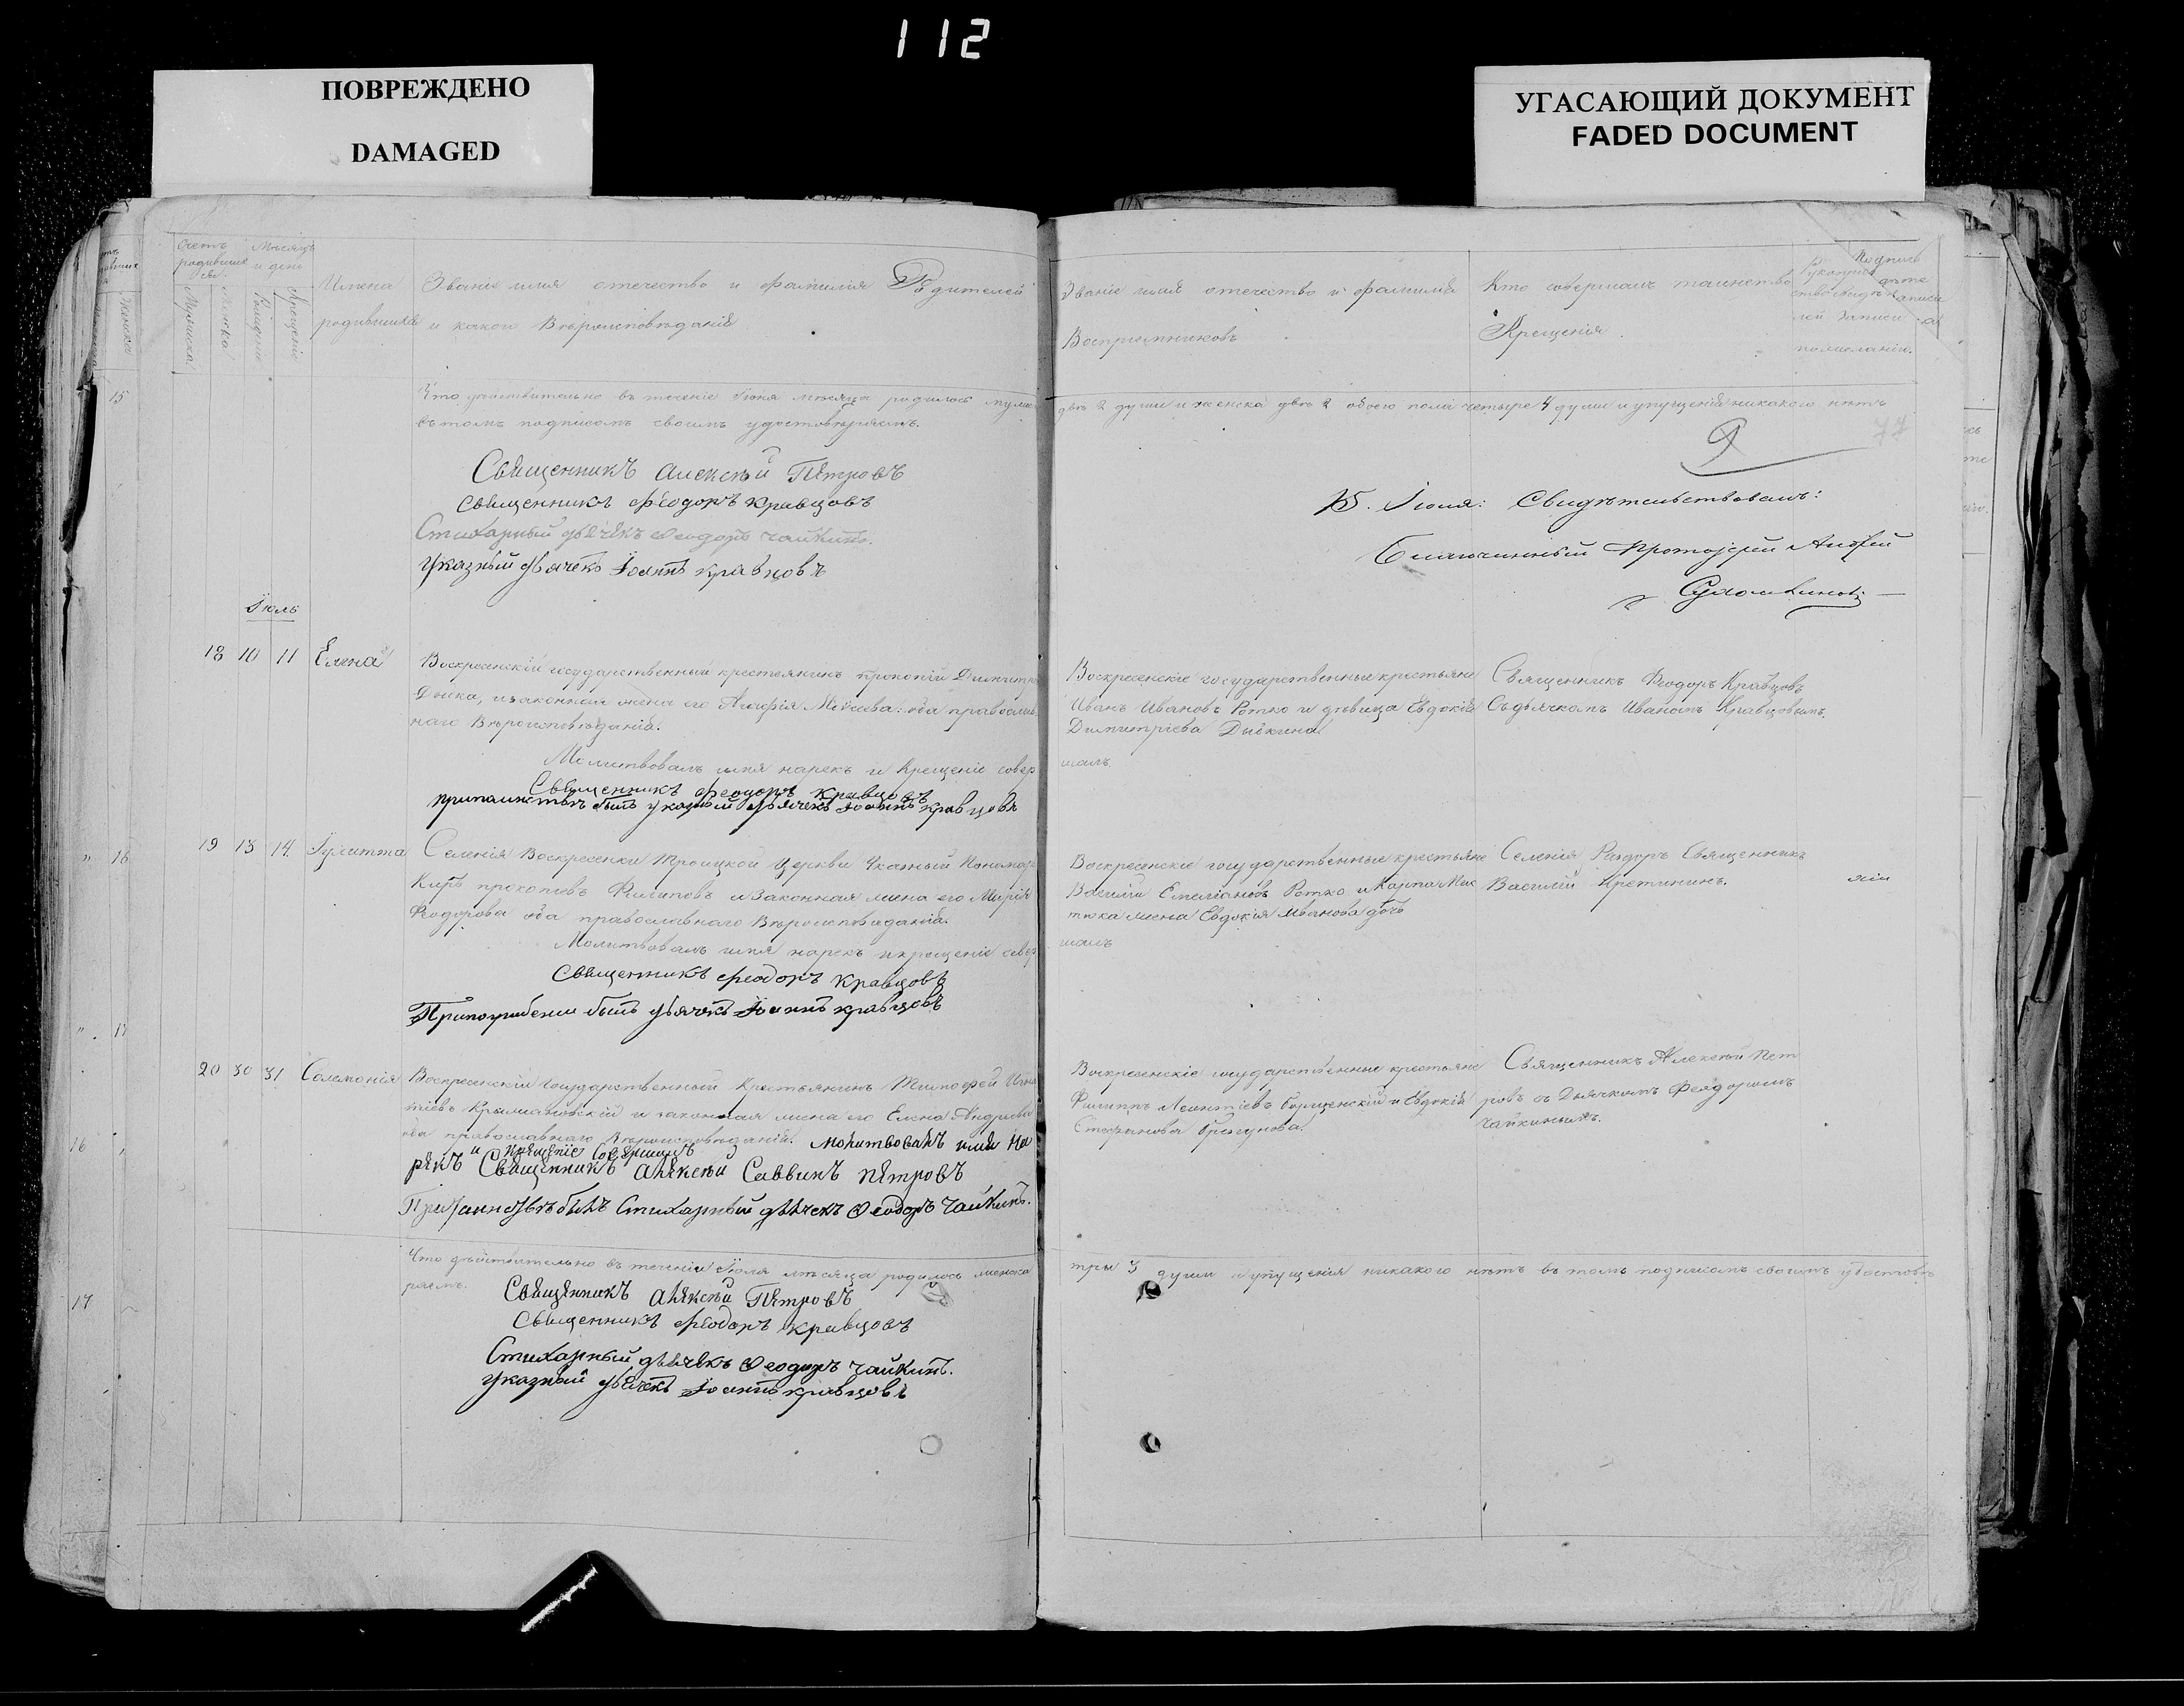 112
ПОВРЕЖДЕНО
DAMAGED
УГАСАЮЩИЙ ДОКУМЕНТ
FADED DOCUMENT
Счетъ родившихся
Мѣсяцъ и день
Мужска
Женска
Рожденіе
Крещеніе
Имена
родившихся
Званіе имя отечество и фамилія Родителей
и какого Вѣроисповѣданія
Что дѣйствительно въ теченіе Іюня мѣсяца родилось мужес
въ томъ подписомъ своимъ удостовѣряемъ.
Священникъ Алексѣй Петровъ
Священникъ Феодоръ Кравцовъ
Стихарный дьячекъ Ѳеодоръ Чайкинъ.
Указный дьячекъ Іоаннъ Кравцовъ
Іюль
18 10 11 Елена
Воскресенскій государственный крестьянинъ Прокопій Димитр
Дыка, изаконная жена его Агафія Моисеева: оба православ
наго Вѣроисповѣданія.
Молитвовалъ имя нарекъ и Крещеніе совер
Священникъ Феодоръ Кравцовъ
притаинствѣ былъ указный дьячекъ Іоаннъ Кравцовъ
19 13 14 Іулитта
Селенія Воскресенки Троицкой Церкви Указный Пономарь
Киръ Прокопіевъ Филиповъ изаконная жена его Марія
Феодорова оба православнаго Вѣроисповѣданія.
Молитвовалъ имя нарекъ икрещеніе совер
Священникъ Феодоръ Кравцовъ
былъ дьячекъ Іоаннъ Кравцовъ
20 30 31 Соломонія
Воскресенскій Государственный Крестьянинъ Тимофей Игна
тіевъ и законная жена его Елена Андреева
оба православнаго Вѣроисповѣданія. Молитвовалъ имя на
рекъ и крещеніе совершилъ Священникъ Алексѣй Саввинъ Петровъ
Притаинствѣ былъ Стихарный дьячекъ Ѳеодоръ Чайкинъ.
Что дѣйствительно въ теченіи Іюля мѣсяца родилось женска
ряемъ.
Священникъ Алексѣй Петровъ
Священникъ Феодоръ Кравцовъ
Стихарный дьячекъ Ѳеодоръ Чайкинъ.
Указный дьячекъ Іоаннъ Кравцовъ
Званіе имя отечество и фамилія
Воспріимниковъ
Кто совершалъ таинство
Крещенія
два 2 души и женска двѣ 2 обоего пола четыре 4 души и упущенія никакого нѣтъ
77
15. Іюля: Свидѣтельствовалъ:
Благочинный Протоіерей Андрей
Воскресенскіе государственные крестьяне
Иванъ Ивановъ Ротко и дѣвица Евдокія
Димитріева Дыбкина
шалъ.
Священникъ Феодоръ Кравцовъ
Съдьячкомъ Иваномъ Кравцовымъ.
Воскресенскіе государственные крестьяне
Василій Емеліановъ Ротко и Карпа
жена Евдокія Иванова дочь
шалъ
Селенія Раздоръ Священникъ
Василій Кретининъ.
Воскресенскіе государственные крестьяне
Филиппъ Леонтіевъ и Евдокія
Стефанова
Священникъ Алексѣй Пет
ровъ съ Дьячкомъ Феодоромъ
Чайкинымъ.
три 3 души и упущенія никакого нѣтъ въ томъ подписомъ своимъ удостовѣ